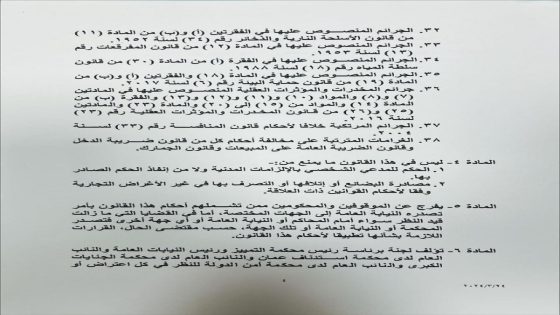 ٣٢. الجرائم المنصوص عليها في الفقرتين (أ) و(ب) من المادة (١١)
من قانون الأسلحة النارية والذخائر رقم (٣٤) لسنة ١٩٥٢.
٣٣. الجرائم المنصوص عليها في المادة (١٢) من قانون المفرقعات رقم
(١٣) لسنة ١٩٥٣.
٣٤. الجرائم المنصوص عليها في الفقرة (أ) من المادة (٣٠) من قانون
سلطة المياه رقم (١٨) لسنة ١٩٨٨.
٣٥. الجرائم المنصوص عليها في المادة (١٨) والفقرتين (أ) و(ب) من
المادة (١٩) من قانون حماية البيئة رقم (٦) لسنة ٢٠١٧.
٣٦. جرائم المخدرات والمؤثرات العقلية المنصوص عليها في المادتين
(٧) و(٨) والمواد (١٠) و(١١) و(١٢) و(١٣) والفقرة (ب) من
المادة (١٤) والمواد من (١٥) إلى (٢٠) والمادة (٢٣) والمادتين
(٢٥) و(٢٦) من قانون المخدرات والمؤثرات العقلية رقم (٢٣)
لسنة ٢٠١٦.
٣٧. الجرائم المرتكبة خلافا لأحكام قانون المنافسة رقم (٣٣) لسنة
٢٠٠٤.
٣٨. الغرامات المترتبة على مخالفة أحكام كل من قانون ضريبة الدخل
وقانون الضريبة العامة على المبيعات وقانون الجمارك.
المادة ٤- ليس في هذا القانون ما يمنع من:-
١. الحكم للمدعي الشخصي بالإلزامات المدنية ولا من إنفاذ الحكم الصادر
بها.
٢. مصادرة البضائع أو إتلافها أو التصرف بها في غير الأغراض التجارية
وفقا لأحكام القوانين ذات العلاقة.
المادة ٥- يفرج عن الموقوفين والمحكومين ممن تشملهم أحكام هذا القانون بأمر
تصدره النيابة العامة إلى الجهات المختصة، أما في القضايا التي ما زالت
قيد النظر سواء أمام المحاكم أو النيابة العامة أو أي جهة أخرى فتصدر
المحكمة أو النيابة العامة أو تلك الجهة، حسب مقتضى الحال، القرارات
اللازمة بشأنها تطبيقا لأحكام هذا القانون.
المادة ٦- تؤلف لجنة برئاسة رئيس محكمة التمييز ورئيس النيابات العامة والنائب
العام لدى محكمة استئناف عمان والنائب العام لدى محكمة الجنايات
الكبرى والنائب العام لدى محكمة أمن الدولة للنظر في كل اعتراض أو
٢٠٢٤/٣/٢٤